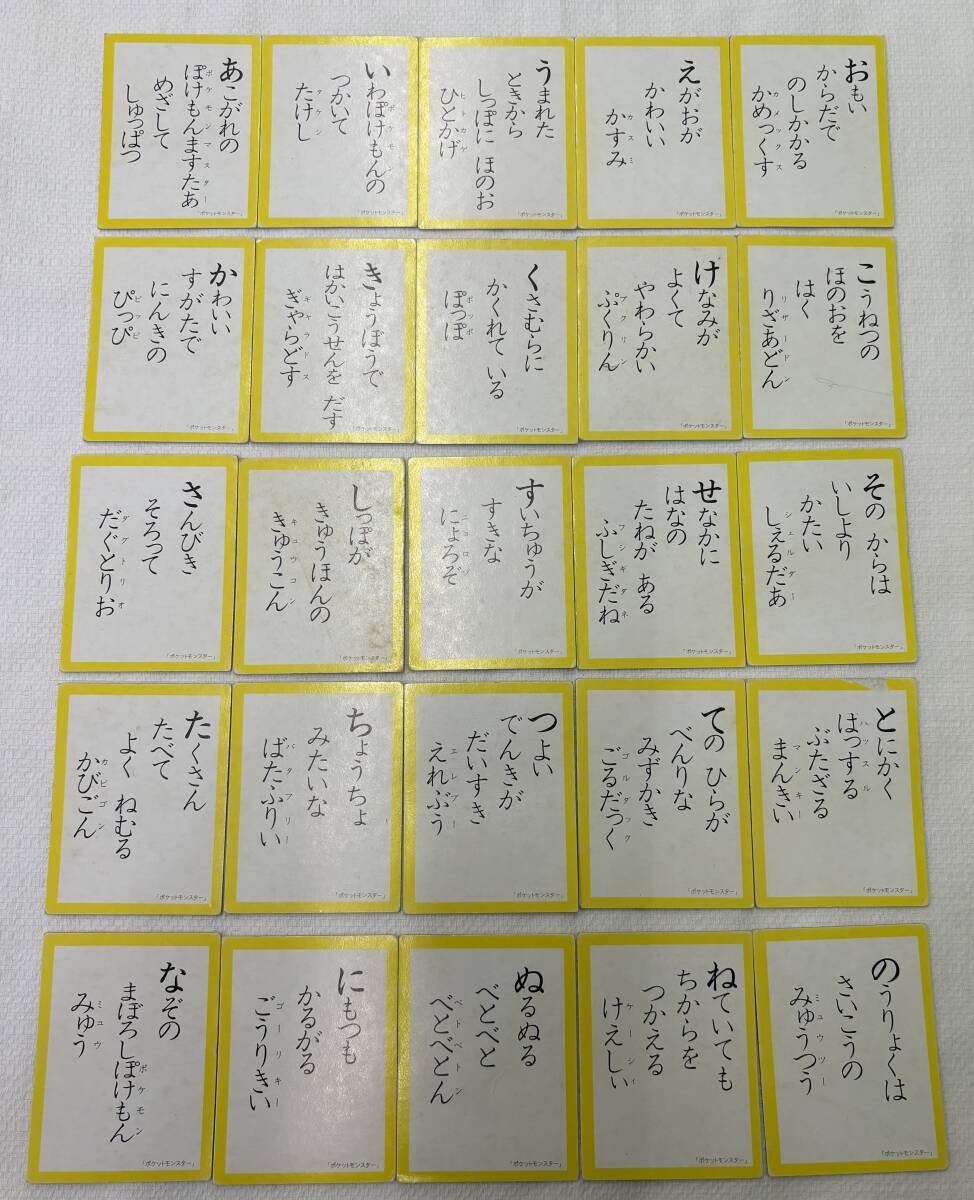 あこがれの
ぽけもんますたあ
ポケモンマスター
めざして
しゅっぱつ
「ポケットモンスター」
いわぽけもんの
ポケモン
つかいて
たけし
タケシ
「ポケットモンスター」
うまれた
ときから
しっぽに ほのお
ひとかげ
ヒトカゲ
「ポケットモンスター」
えがおが
かわいい
かすみ
カスミ
「ポケットモンスター」
おもい
からだで
のしかかる
かめっくす
カメックス
「ポケットモンスター」
かわいい
すがたで
にんきの
ぴっぴ
ピッピ
「ポケットモンスター」
きょうぼうで
はかいこうせんを だす
ぎゃらどす
ギャラドス
「ポケットモンスター」
くさむらに
かくれて いる
ぽっぽ
ポッポ
「ポケットモンスター」
けなみが
よくて
やわらかい
ぷくりん
プクリン
「ポケットモンスター」
こうねつの
ほのおを
はく
りざあどん
リザードン
「ポケットモンスター」
さんびき
そろって
だぐとりお
ダグトリオ
「ポケットモンスター」
しっぽが
きゅうほんの
きゅうこん
キュウコン
「ポケットモンスター」
すいちゅうが
すきな
にょろぞ
ニョロゾ
「ポケットモンスター」
せなかに
はなの
たねが ある
ふしぎだね
フシギダネ
「ポケットモンスター」
その からは
いしより
かたい
しぇるだあ
シェルダー
「ポケットモンスター」
たくさん
たべて
よく ねむる
かびごん
カビゴン
「ポケットモンスター」
ちょうちょ
みたいな
ばたふりい
バタフリー
「ポケットモンスター」
つよい
でんきが
だいすき
えれぶう
エレブー
「ポケットモンスター」
ての ひらが
べんりな
みずかき
ごるだっく
ゴルダック
「ポケットモンスター」
とにかく
はっする
ハッスル
ぶたざる
まんきい
マンキー
「ポケットモンスター」
なぞの
まぼろしぽけもん
ポケモン
みゅう
ミュウ
「ポケットモンスター」
にもつも
かるがる
ごうりきい
ゴーリキー
「ポケットモンスター」
ぬるぬる
べとべと
べとべとん
ベトベトン
「ポケットモンスター」
ねていても
ちからを
つかえる
けえしぃ
ケーシィ
「ポケットモンスター」
のうりょくは
さいこうの
みゅうつう
ミュウツー
「ポケットモンスター」